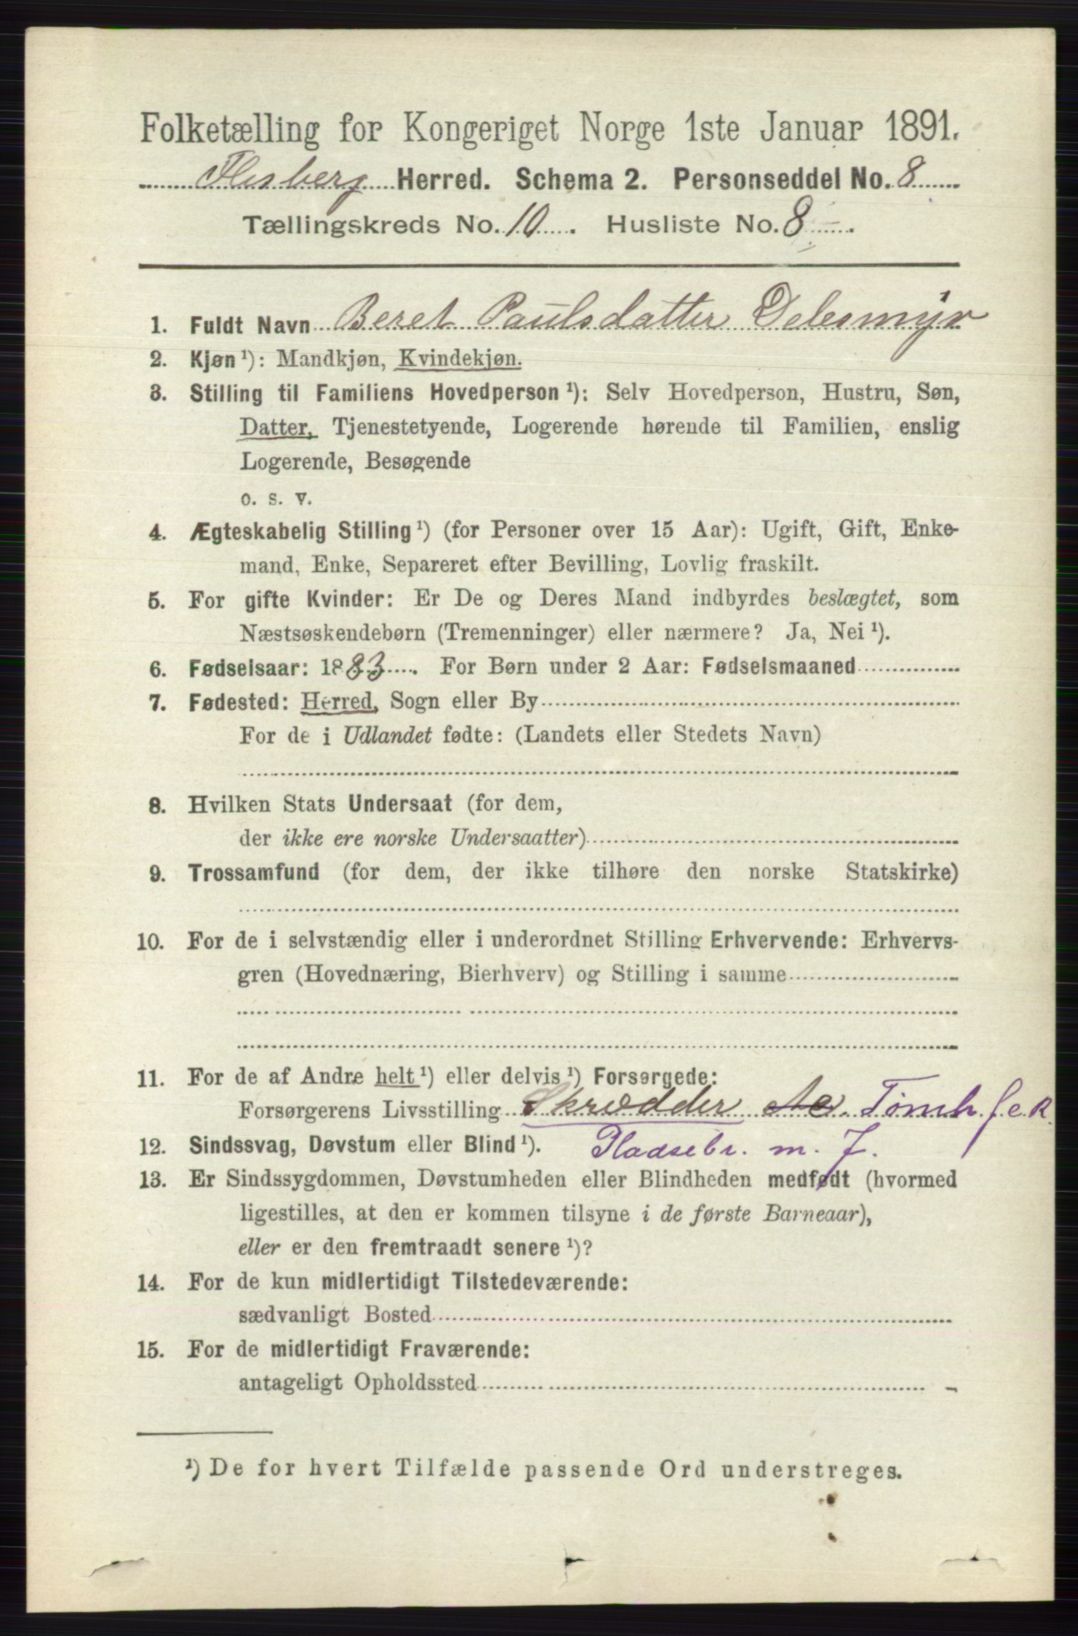 Folketælling for Kongeriget Norge 1ste Januar 1891.
Flesberg Herred. Schema 2. Personseddel No. 8
Tællingskreds No. 10. Husliste No. 8
1. Fuldt Navn Beret Paulsdatter Delesmyr
2. Kjøn ¹): Mandkjøn, Kvindekjøn.
3. Stilling til Familiens Hovedperson ¹): Selv Hovedperson, Hustru, Søn,
Datter, Tjenestetyende, Logerende hørende til Familien, enslig
Logerende, Besøgende
o. s. v.
4. Ægteskabelig Stilling ¹) (for Personer over 15 Aar): Ugift, Gift, Enke-
mand, Enke, Separeret efter Bevilling, Lovlig fraskilt.
5. For gifte Kvinder: Er De og Deres Mand indbyrdes beslægtet, som
Næstsøskendebørn (Tremenninger) eller nærmere? Ja, Nei ¹).
6. Fødselsaar: 1883. For Børn under 2 Aar: Fødselsmaaned
7. Fødested: Herred, Sogn eller By
For de i Udlandet fødte: (Landets eller Stedets Navn)
8. Hvilken Stats Undersaat (for dem,
der ikke ere norske Undersaatter)
9. Trossamfund (for dem, der ikke tilhøre den norske Statskirke)
10. For de i selvstændig eller i underordnet Stilling Erhvervende: Erhvervs-
gren (Hovednæring, Bierhverv) og Stilling i samme
11. For de af Andre helt ¹) eller delvis ¹) Forsørgede:
Forsørgerens Livsstilling Skrædder Tømh.
12. Sindssvag, Døvstum eller Blind ¹). Pladsebr. m. J.
13. Er Sindssygdommen, Døvstumheden eller Blindheden medfødt (hvormed
ligestilles, at den er kommen tilsyne i de første Barneaar),
eller er den fremtraadt senere ¹)?
14. For de kun midlertidigt Tilstedeværende:
sædvanligt Bosted
15. For de midlertidigt Fraværende:
antageligt Opholdssted
¹) De for hvert Tilfælde passende Ord understreges.